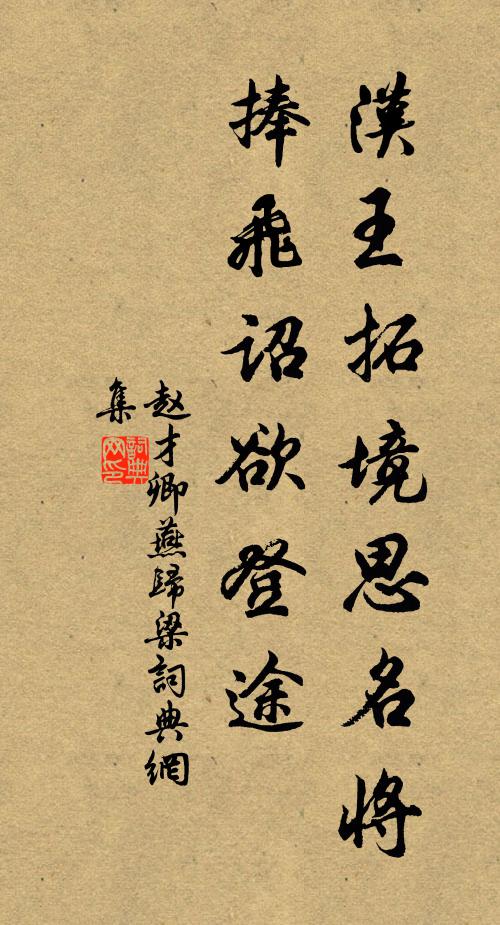 漢王拓境思名將
捧飛詔欲登途
赵才卿燕歸梁詞典網
集
詞典网印